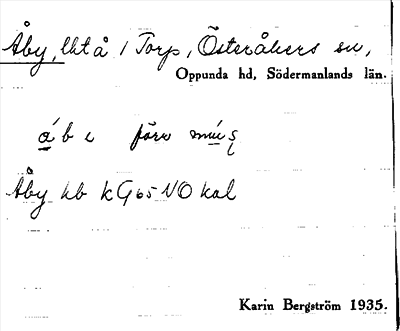 Åby, lht å / Torp, Österåkers sn,
Oppunda hd, Södermanlands län.
åb
Åby hb k G 65 NO kal
Karin Bergström 1935.